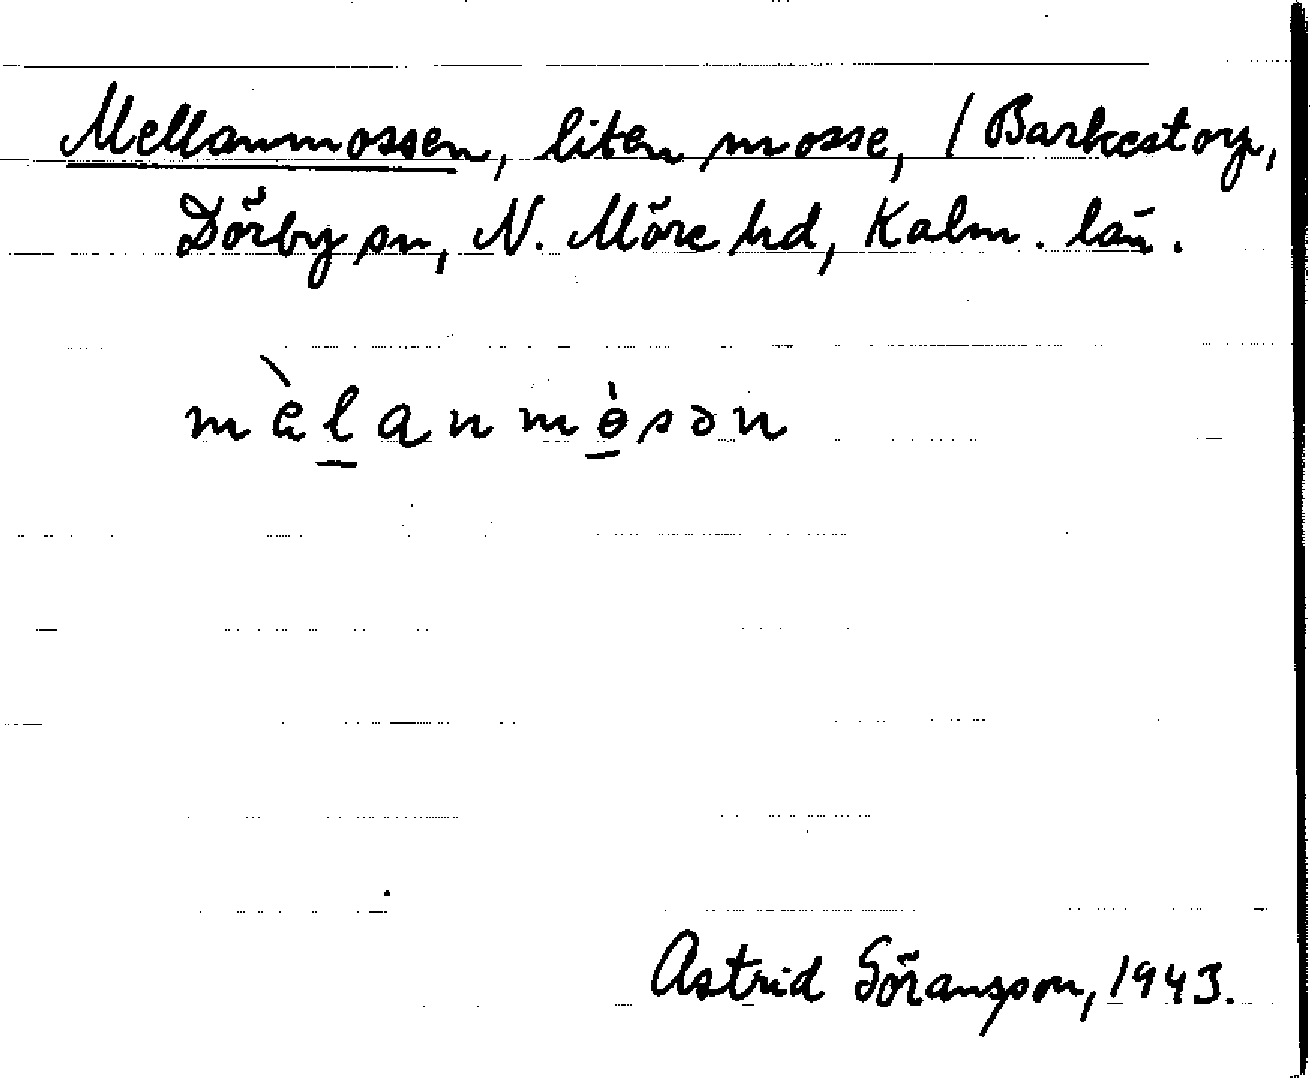 Mellanmossen, liten mosse, / Barkestorp,
Dörby sn, N. Möre hd, Kalm. län.
mèlanmósən
Astrid Göransson, 1943.